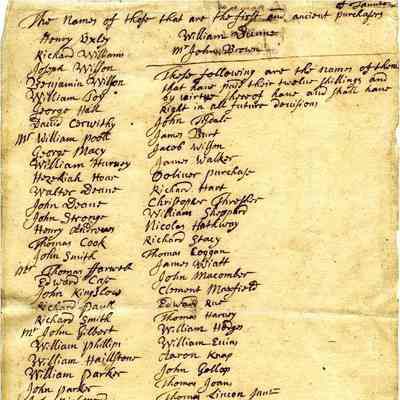 The Names of those that are the first and ancient purchasers of Taunton
Henry Uxley
Richard Williams
Joseph Willson
Benjamin Wilson
William Coy
George Hall
David Corwithy
Mr William Pooll
George Macy
William Harvey
Hezekiah Hoar
Walter Deane
John Deane
John Stronge
Henry Andrews
Thomas Cook
John Smith
Mr Thomas Farwell
Edward Case
John Kingslow
Richard Paull
Richard Smith
Mr John Gilbert
William Phillips
William Hailstone
William Parker
John Parker
William Dunne
Mr John Brown
Those following are the names of them
that have paid their twelve shillings and
by virtue thereof have and shall have
Right in all future devisions
John
James Burt
Jacob Wilson
James Walker
Ooliver purchase
Richard Hart
Christopher Thresher
William Sheppard
Nicolas Hathway
Richard Stacy
Thomas Coggan
James Wiatt
John Macomber
Clement Maxfield
Edward Rue
Thomas Harvey
William Hodges
William Evins
Aaron Knap
John Gollop
Thomas Joans
Thomas Lincon Junr